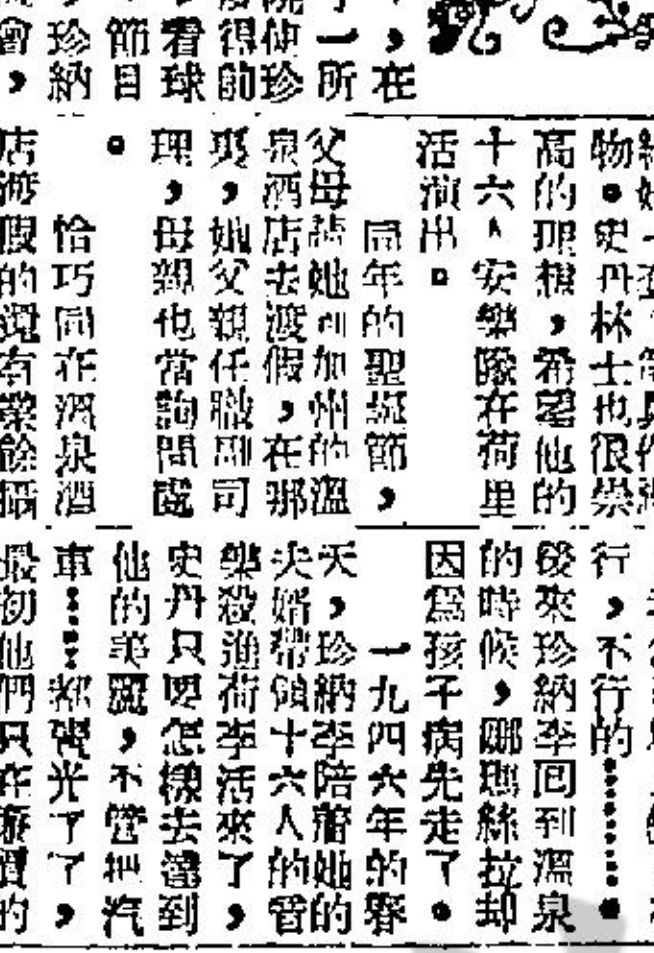 ，在
一所
使珍
得的
看球
節目
珍納
會，
物。史丹林士也很崇
高的理想，希望他的
十六人安樂隊在荷里
活演出。
同年的聖誕節，
父母請她到加州的溫
泉酒店去渡假，在那
裏，她父親任職副司
理，母親也當詢問處
。
恰巧同在溫泉酒
店渡假的還有業餘攝
行，不行的……。
後來珍納李回到溫泉
的時候，娜瑪絲拉却
因爲孩子病先走了。
一九四六年的春
天，珍納李陪着她的
夫婿帶領十六人的音
樂殺進荷李活來了，
史丹只要怎樣去達到
他的美麗，不管把汽
車……都賣光了，
最初他們只在的